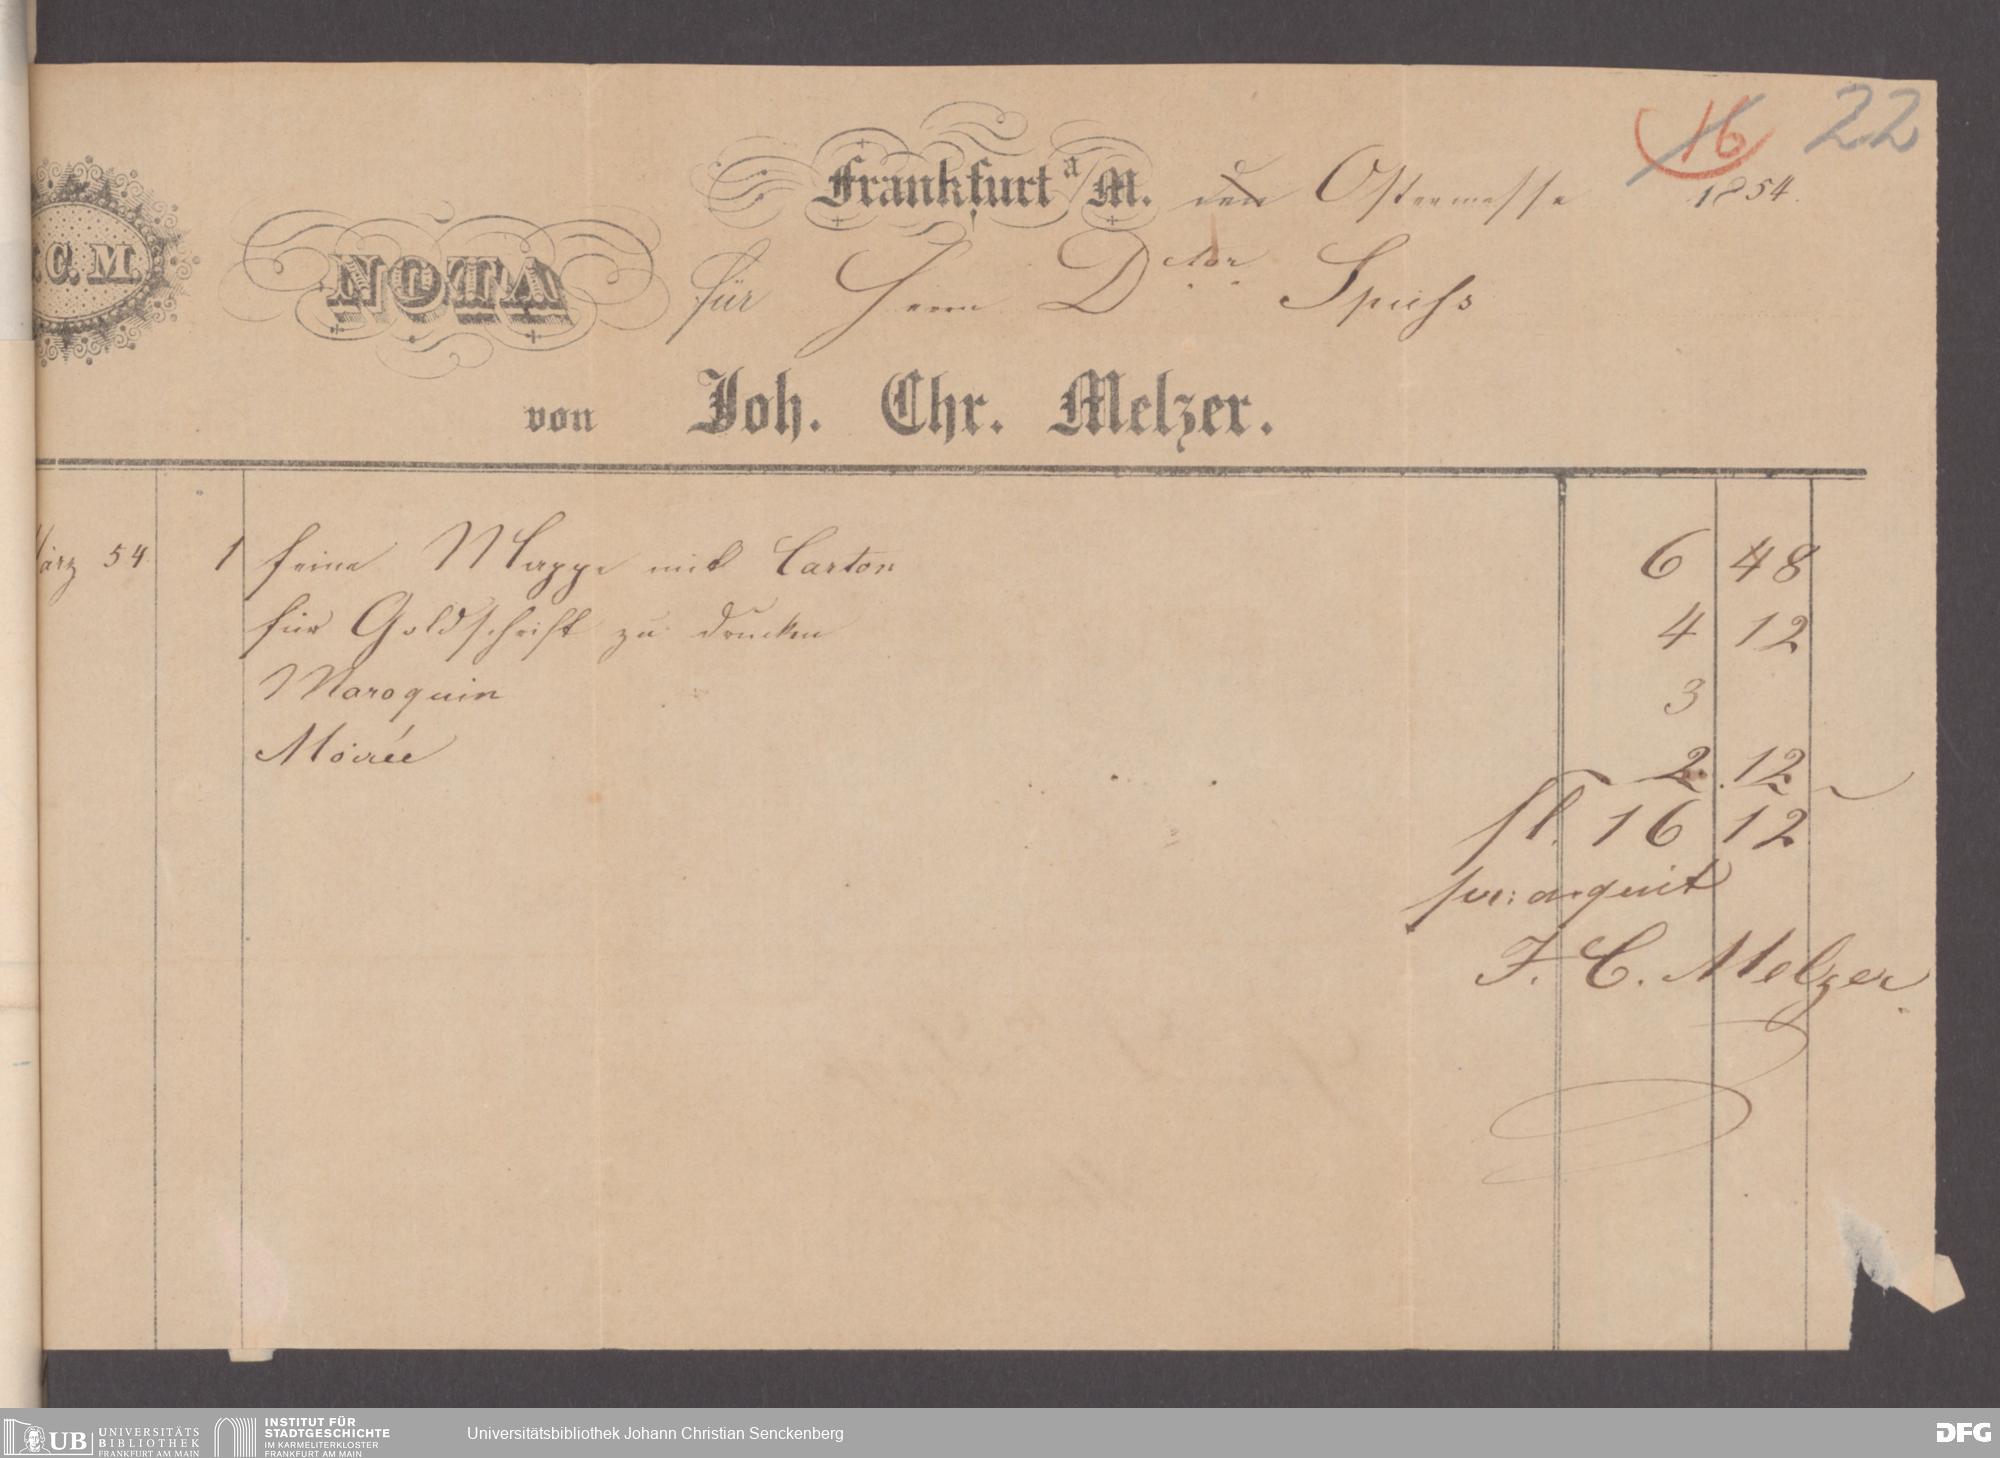 16 22
Frankfurt a/M. den Ostermesse 1854.
. C. M.
NOTA für Herrn Dctor Spiess
von Joh. Chr. Melzer.
März 54 1 feine Mappe mit Carton 6 48
für Goldschrift zu drucken 4 12
Maroquin 3
Moirée 2. 12
fl. 16 12
pr: acquit
J. C. Melzer
UB UNIVERSITÄTS
BIBLIOTHEK
FRANKFURT AM MAIN
INSTITUT FÜR
STADTGESCHICHTE
IM KARMELITERKLOSTER
FRANKFURT AM MAIN
Universitätsbibliothek Johann Christian Senckenberg
DFG